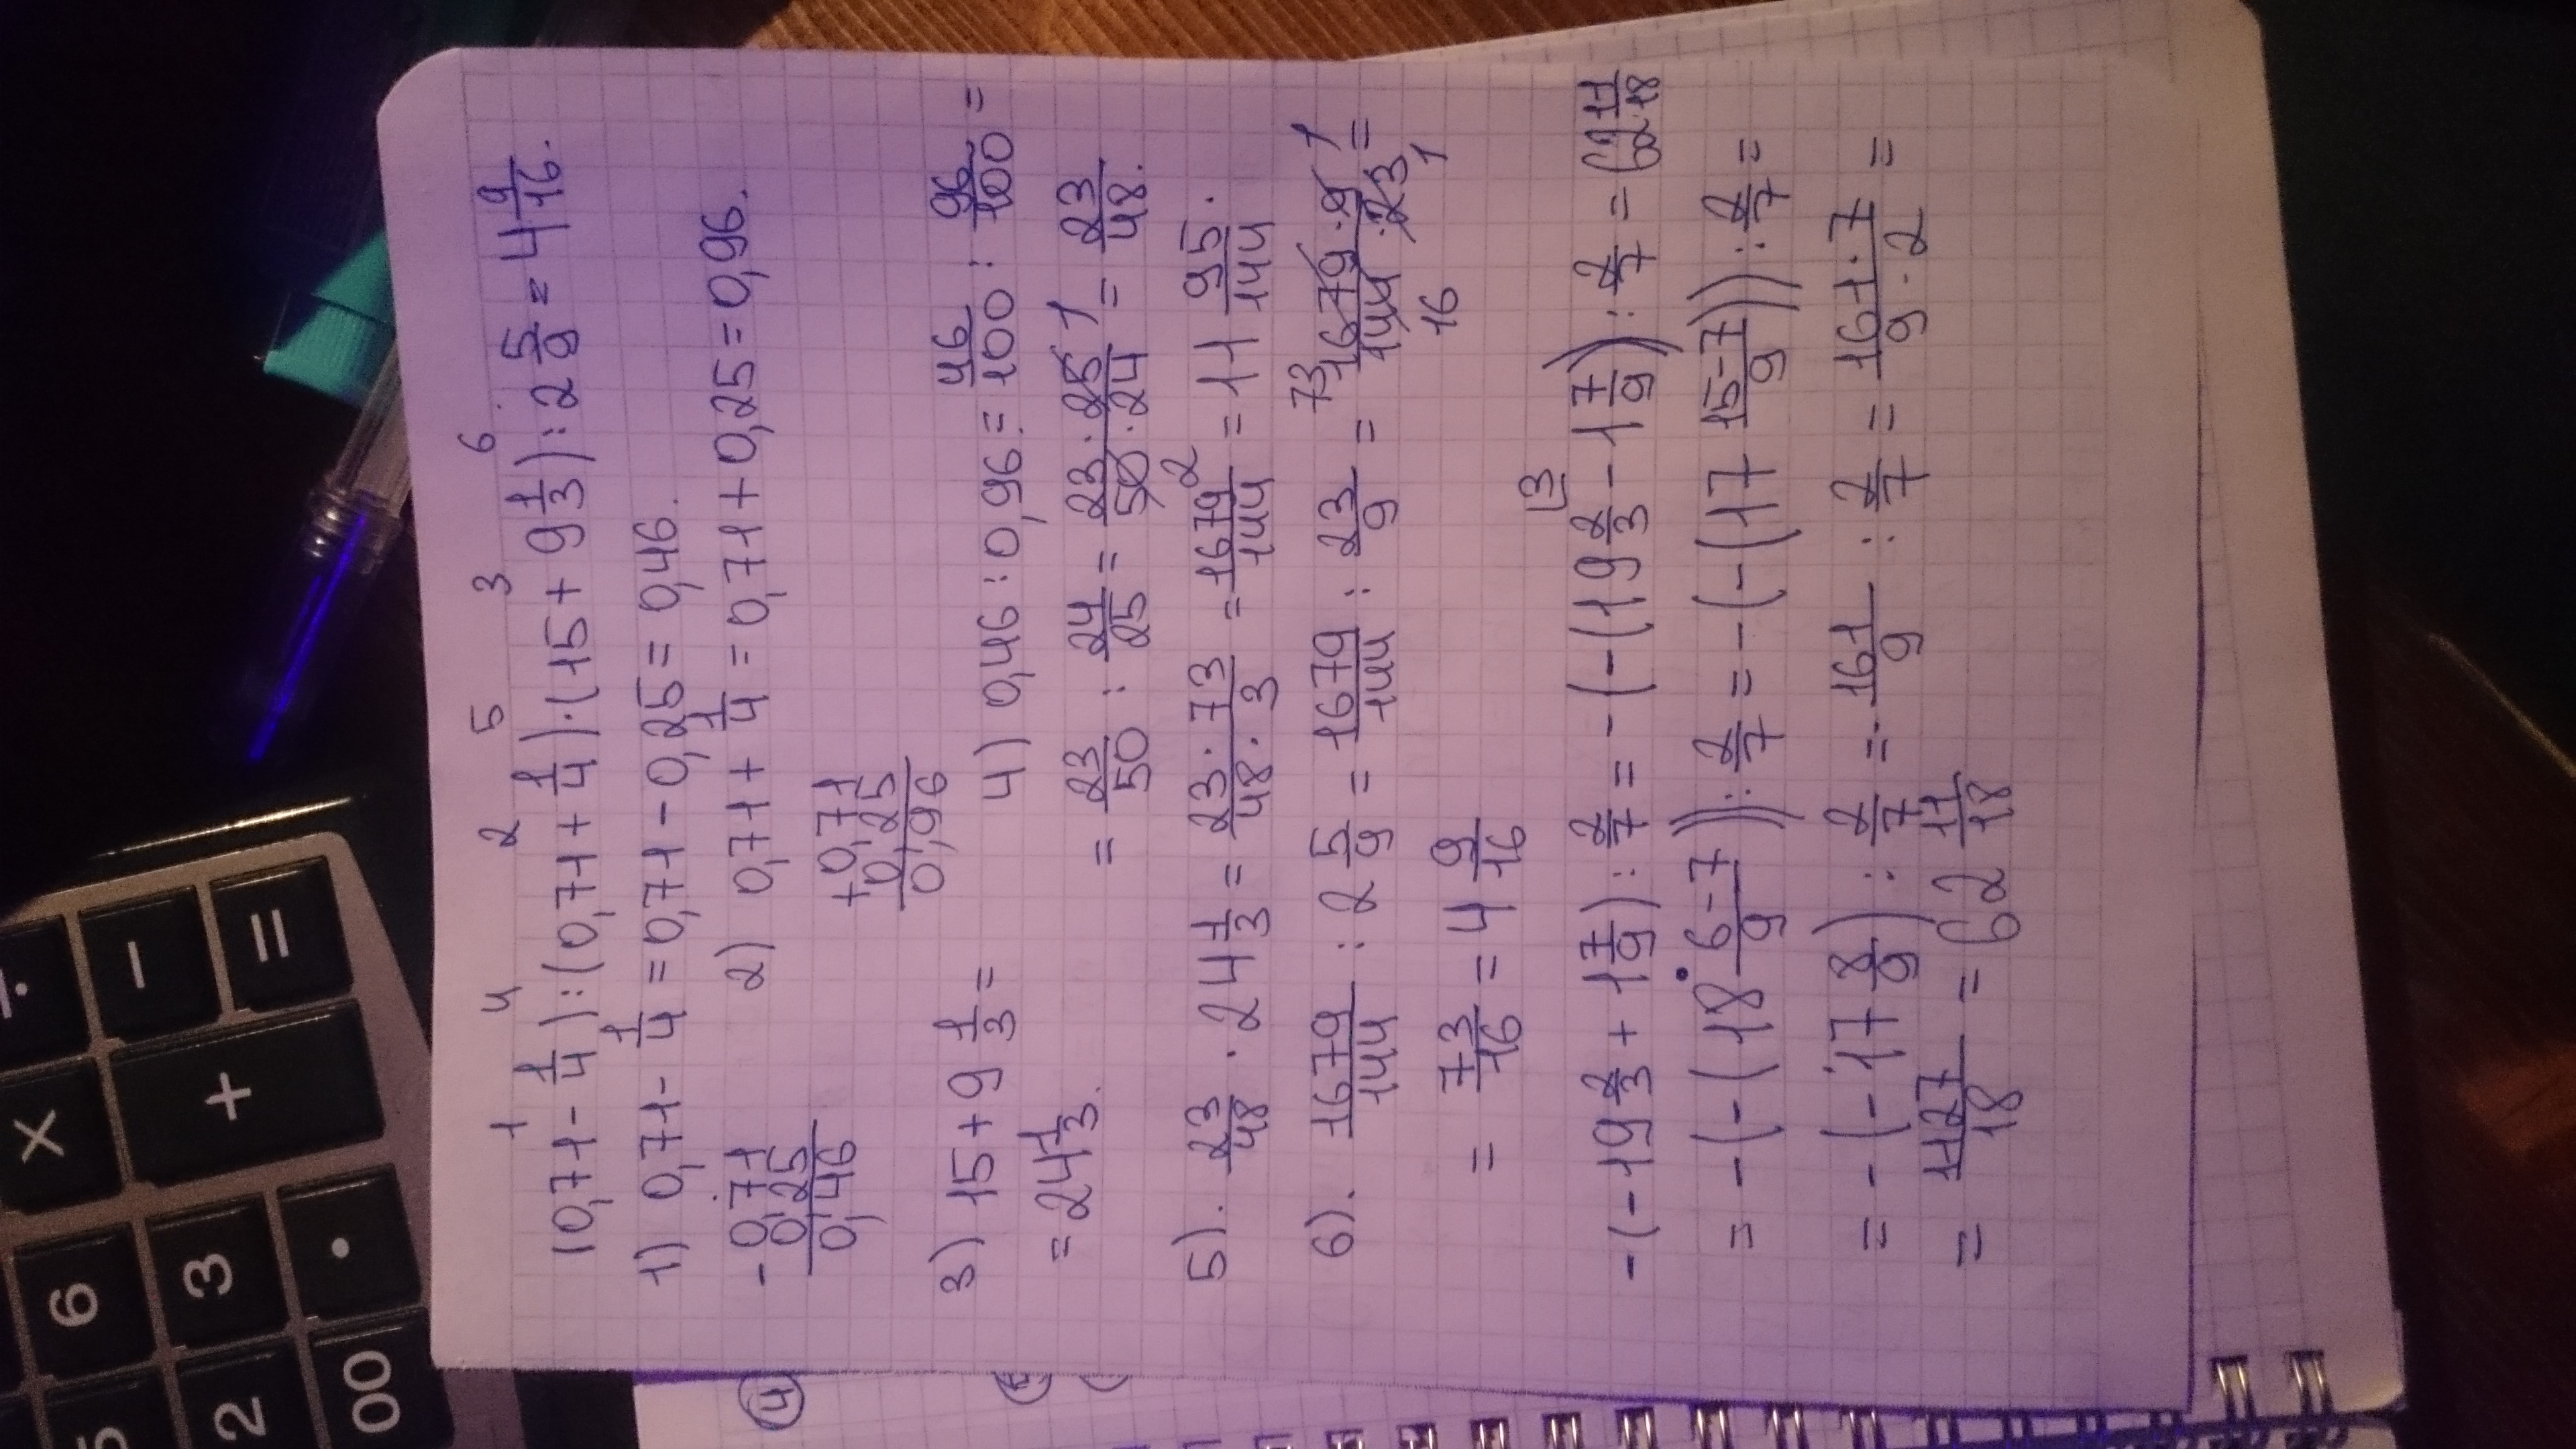 1 4 2 5 3 6
(0,71 - 1/4) : (0,71 + 1/4) · (15 + 9 1/3) : 2 5/9 = 4 9/16.
1) 0,71 - 1/4 = 0,71 - 0,25 = 0,46.
- 0,71
0,25
0,46
2) 0,71 + 1/4 = 0,71 + 0,25 = 0,96.
+ 0,71
0,25
0,96
3) 15 + 9 1/3 =
= 24 1/3.
4) 0,46 : 0,96 = 46/100 : 96/100 =
= 23/50 : 24/25 = 23 · 25 1/50 · 24 2 = 23/48.
5). 23/48 · 24 1/3 = 23 · 73/48 · 3 = 1679/144 = 11 95/144.
6). 1679/144 : 2 5/9 = 1679/144 : 23/9 = 73 1679 · 9 1/144 · 23 16 1 =
= 73/16 = 4 9/16
- (- 19 2/3 + 1 7/9) : 2/7 = - (- (19 2/3 - 1 7/9) : 2/7 = (62 11/18
= - (- (18 6-7/9)) : 2/7 = - (- (17 15-7/9)) : 2/7 =
= - (- 17 8/9) : 2/7 = 161/9 : 2/7 = 161 · 7/9 · 2 =
= 1127/18 = 62 11/18
4
÷
×
-
+
=
6
3
.
5
2
00